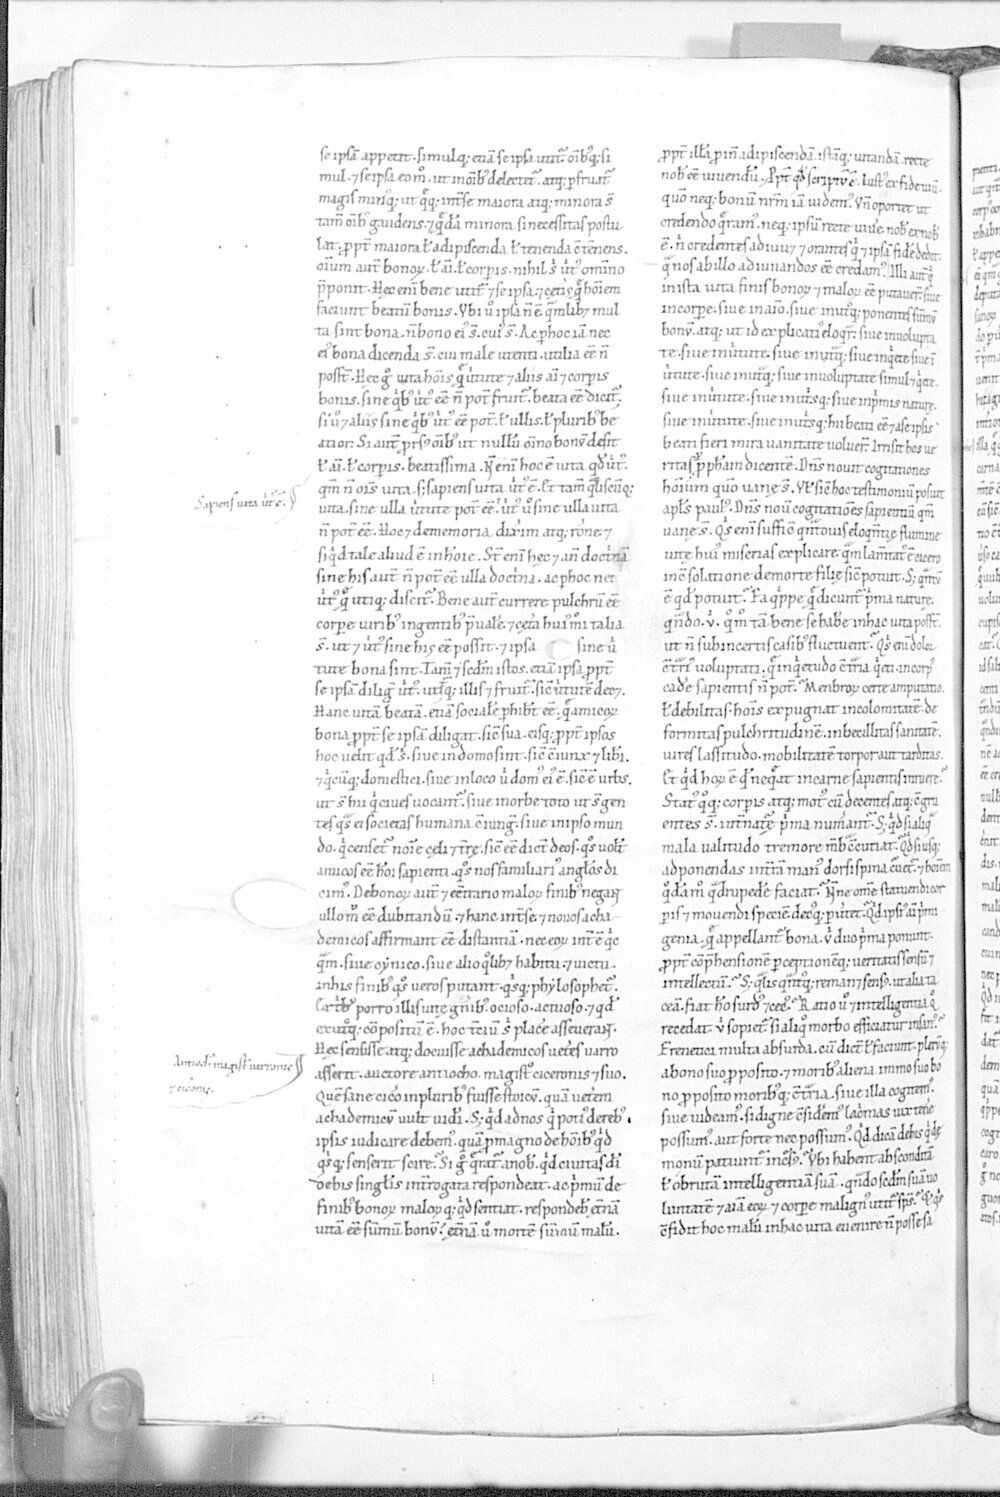 se ipsā appetit. simulq; etiā se ipsa utit᷑. oīb᷒q; si
mul. ⁊ se ipsa eom̄. ut in oīb᷒ delectet᷑. atq; pfruat᷑
magis minꝰq; ut q̄q; int̄ se maiora atq; minora s̄
tam̄ oīb᷒ gaudens. ⁊ q̄dā minora si necessitas postu
lat. ꝓpt̄ maiora ł adipiscenda ł tenenda ɔ̄tēnens.
oīum aut̄ bonoꝝ. ł aī. ł corpis. nihil s̄ v̄tꝰ om̄ino
p̄ponit. Hec enī bene utit᷑ ⁊ se ipsa. ⁊ cet̄is q̄ hōiem
faciunt beatū bonis. Vbi ū ipsa n̄ ē q̄mlibꝫ mul
ta sint bona. n̄ bono eiꝰ s̄. cuiꝰ s̄. Ac ꝑhoc iā nec
eiꝰ bona dicenda s̄. cui male utenti. utilia eē n̄
possꝫ. Hec ḡ uita hōis. q̄ v̄tute ⁊ aliis aī ⁊ corpis
bonis. sine qⁱb᷒ v̄tꝰ eē n̄ pot̄ fruit᷑. beata eē dicit᷑.
si ū ⁊ aliis sine qⁱb᷒ v̄tꝰ eē pot̄. ł ullis. ł plurib᷒ be
atior. Si aut̄ ꝓrsꝰ oīb᷒ ut nullū oīno bonū desit
ł aī. ł corpis. beatissima. N̄ enī hoc ē uita qd̄ v̄tꝰ.
qm̄ n̄ oīs uita. sꝫ sapiens uita v̄tꝰ ē. Et tam̄ q̄liscūq;
uita. sine ulla v̄tute pot̄ eē. v̄tꝰ ū sine ulla uita
n̄ pot̄ eē. Hoc ⁊ de memoria dixim̄ atq; rōne ⁊
siqⁱd tale aliud ē in hōie. St̄ enī hec ⁊ an̄ doctⁱnā
sine his aut̄ n̄ pot̄ eē ulla doctⁱna. ac ꝑhoc nec
v̄tꝰ q̄ utiq; discit᷑. Bene aut̄ currere pulchrū eē
corpe uirib᷒ ingentib᷒ p̄ualē. ⁊ cet̄a huiꝰmⁱ talia
s̄. ut ⁊ v̄tꝰ sine his eē possit. ⁊ ipsa sine v̄
tute bona sint. Tam̄ ⁊ scdm̄ istos. etiā ipsa ꝓpt̄
se ipsā diligit v̄tꝰ. utⁱq; illis ⁊ fruit᷑. sic̄ v̄tutē decꝫ.
Hanc uitā beatā. etiā socialē ꝑhibt̄ eē. q̄ amicoꝝ
bona ꝓpt̄ se ipsā diligat. sic̄ sua. eisq; ꝓpt̄ ipsos
hoc uelit qd̄ s̄. siue in domo sint. sic̄ ɔ̄iunx ⁊ libⁱ.
⁊ qⁱcūq; domestici. siue in loco ū domꝰ eiꝰ ē. sic̄ ē urbs.
ut s̄ hii qⁱ ciues uocant᷑. siue in orbe toto ut s̄ gen
tes q̄s ei societas humana ɔ̄iungꝫ. siue in ipso mun
do. qⁱ censet᷑ noīe celi ⁊ tr̄e. sic̄ eē dict̄ deos. qᵒs uolt̄
amicos eē hōi sapienti. qᵒs nos familiariꝰ angłos di
cimꝰ. De bonoꝝ aut̄ ⁊ eɔ̄trario maloꝝ finib᷒ negant
ullom̄ eē dubitandū. ⁊ hanc int̄ se. ⁊ nouos acha
demicos affirmant eē distantiā. nec eoꝝ int̄ ē qⁱc
q̄m. siue cynico. siue alio qᵒlibꝫ habitu. ⁊ uictu.
in his finib᷒ qᵒs ueros putant. qⁱsq; phylosophet᷑.
Ex tⁱbꝰ porro illis uite gn̄ib᷒. ocioso. actuoso. ⁊ qd̄
ex utⁱq; cōpositū ē. hoc tc̄iū s̄ placē asseuerant.
Hec sensisse atq; docuisse achademicos uet̄es uarro
asserit. auctore antiocho. magist̄ ciceronis ⁊ suo.
Quē sane cic̄o in plurib᷒ fuisse stoicū. quā uet̄em
achademicū uult uidⁱ. Sꝫ qⁱd ad nos qⁱ potiꝰ de reb᷒
ipsis iudicare debemꝰ. quā ꝓ magno de hōib᷒ qⁱd
qⁱsq; senserit scire. Si ḡ q̄rat᷑ a nob̄. qⁱd ciuitas dī
de his singłis int̄rogata respondeat. ac pⁱmū de
finib᷒ bonoꝝ maloꝝq; qⁱd sentiat. respondeb̄ et̄nā
uitā eē sūmū bonū. et̄nā ū mortē sūmū malū.
ꝓpt̄ illā ꝓin̄ adipiscendā. istāq; uitandā. recte
nob̄ eē uiuendū. Ppt̄ qd̄ scriptū ē. Iustꝰ ex fide uiuit.
quō neq; bonū nr̄m iā uidemꝰ. Vn̄ oportet ut
credendo q̄ramꝰ. neq; ipsū recte uiue nob̄ ex nob̄
ē. n̄ credentes adiuuꝫ ⁊ orantes qⁱ ⁊ ipsā fidē dedit.
q̄ nos ab illo adiuuandos eē credamꝰ. Illi aut̄ qⁱ
in ista uita finis bonoꝝ ⁊ maloꝝ eē putauer̄. siue
in corpe. siue in aīo. siue in utⁱq; ponentes sūmū
bonū. atq; ut id explicatiꝰ eloqr̄. siue in uolupta
te. siue in v̄tute. siue in utⁱq; siue in qⁱete. siue ī
v̄tute. siue in utⁱq; siue in uoluptate simul ⁊ qⁱete.
siue in v̄tute. siue in utⁱsq; siue in pⁱmis nature.
siue in v̄tute. siue in utⁱsq; hii beati eē ⁊ a se ipsis
beati fieri mira uanitate uoluer̄. Irrisit hos ue
ritas ꝑ ꝓph̄am dicentē. Dn̄s nouit cogitationes
hōium quō uane s̄. Vł sic̄ hoc testimoniū posuit
apłs paulꝰ. Dn̄s nouit cogitatiōes sapientiū qm̄
uane s̄. Qⁱs enī suffic̄ q̄ntouis eloqn̄tie flumine
uite huiꝰ miserias explicare. q̄m lam̄tatꝰ ē cicero
in ɔ̄solatione de morte filie sic̄ potuit. Sꝫ q̄ntū
ē qd̄ potuit. Ea qⁱppe q̄ dicunt᷑ pⁱma nature.
qn̄do. ū. q̄m̄ tā bene se habe in hac uita possꝫ.
ut n̄ sub incertis casib᷒ fluctuent᷑. Qⁱs enī dolor
ɔ̄trⁱꝰ uoluptati. q̄ inqⁱetudo ɔ̄trⁱa qⁱeti. in corpꝰ
cadē sapientis n̄ pot̄. Menbroꝝ certe amputatio.
ł debilitas. hōis expugnat incolomitatē. de
formitas pulchritudinē. inbecillitas sanitatē.
uires lassitudo. mobilitatē torpor aut tarditas.
Et qⁱd hoꝝ ē qd̄ neqⁱat in carnē sapientis inruere.
Statꝰ qᵒq; corpis atq; motꝰ cū decentes atq; ɔ̄gru
entes s̄. int̄ nat̄e pⁱma num̄ant᷑. Sꝫ qⁱd si aliq̄
mala ualitudo tremore mēb̄ ɔ̄cutiat. Qⁱd si usq;
ad ponendas in tr̄a manꝰ dorsi spina cuet᷑. ⁊ hoīem
qᵒdām̄ q̄drupedē faciat. Nn̄e om̄e statuendi cor
pis ⁊ mouendi speciē. decꝰq; puert̄et. Qⁱd ipsiꝰ aī pⁱmi
genia. q̄ appellant᷑ bona. ū duo pⁱma ponunt.
ꝓpt̄ cōp̄hensionē pceptionēq; ueritatis sensū ⁊
intellectū. Sꝫ q̄lis q̄ntꝰq; remanꝫ sensꝰ. ut alia ta
ceā. fiat hō surdꝰ ⁊ cecꝰ. Ratio ū ⁊ intelligentia qᵒ
recedat. ū sopiet᷑. si aliqᵒ morbo efficiatur insanꝰ.
Frenetici multa absurda. cū dict̄ ł faciunt. plerūq;
a bono suo ꝓposito. ⁊ morib᷒ aliena immo suo bo
no ꝓposito moribꝰq; ɔ̄trⁱa. siue illa cogitemꝰ.
siue uideamꝰ. si digne ɔ̄sidem̄ lacⁱmas uix tenē
possumꝰ. aut forte nec possumꝰ. Qⁱd dicā de his qⁱ de
monū patiunt᷑ incursꝰ. Vbi habent absconditā
ł obrutā intelligentiā suā. qn̄do scdm̄ suā uo
luntatē ⁊ aīa eoꝝ ⁊ corpe malignꝰ utit᷑ sps̄. Et qⁱs
ɔ̄fidit hoc malū in hac uita euenire n̄ posse sa
Sapiens uita v̄tꝰ ē.
Antiochꝰ magist̄ uarronis
⁊ cic̄onis.